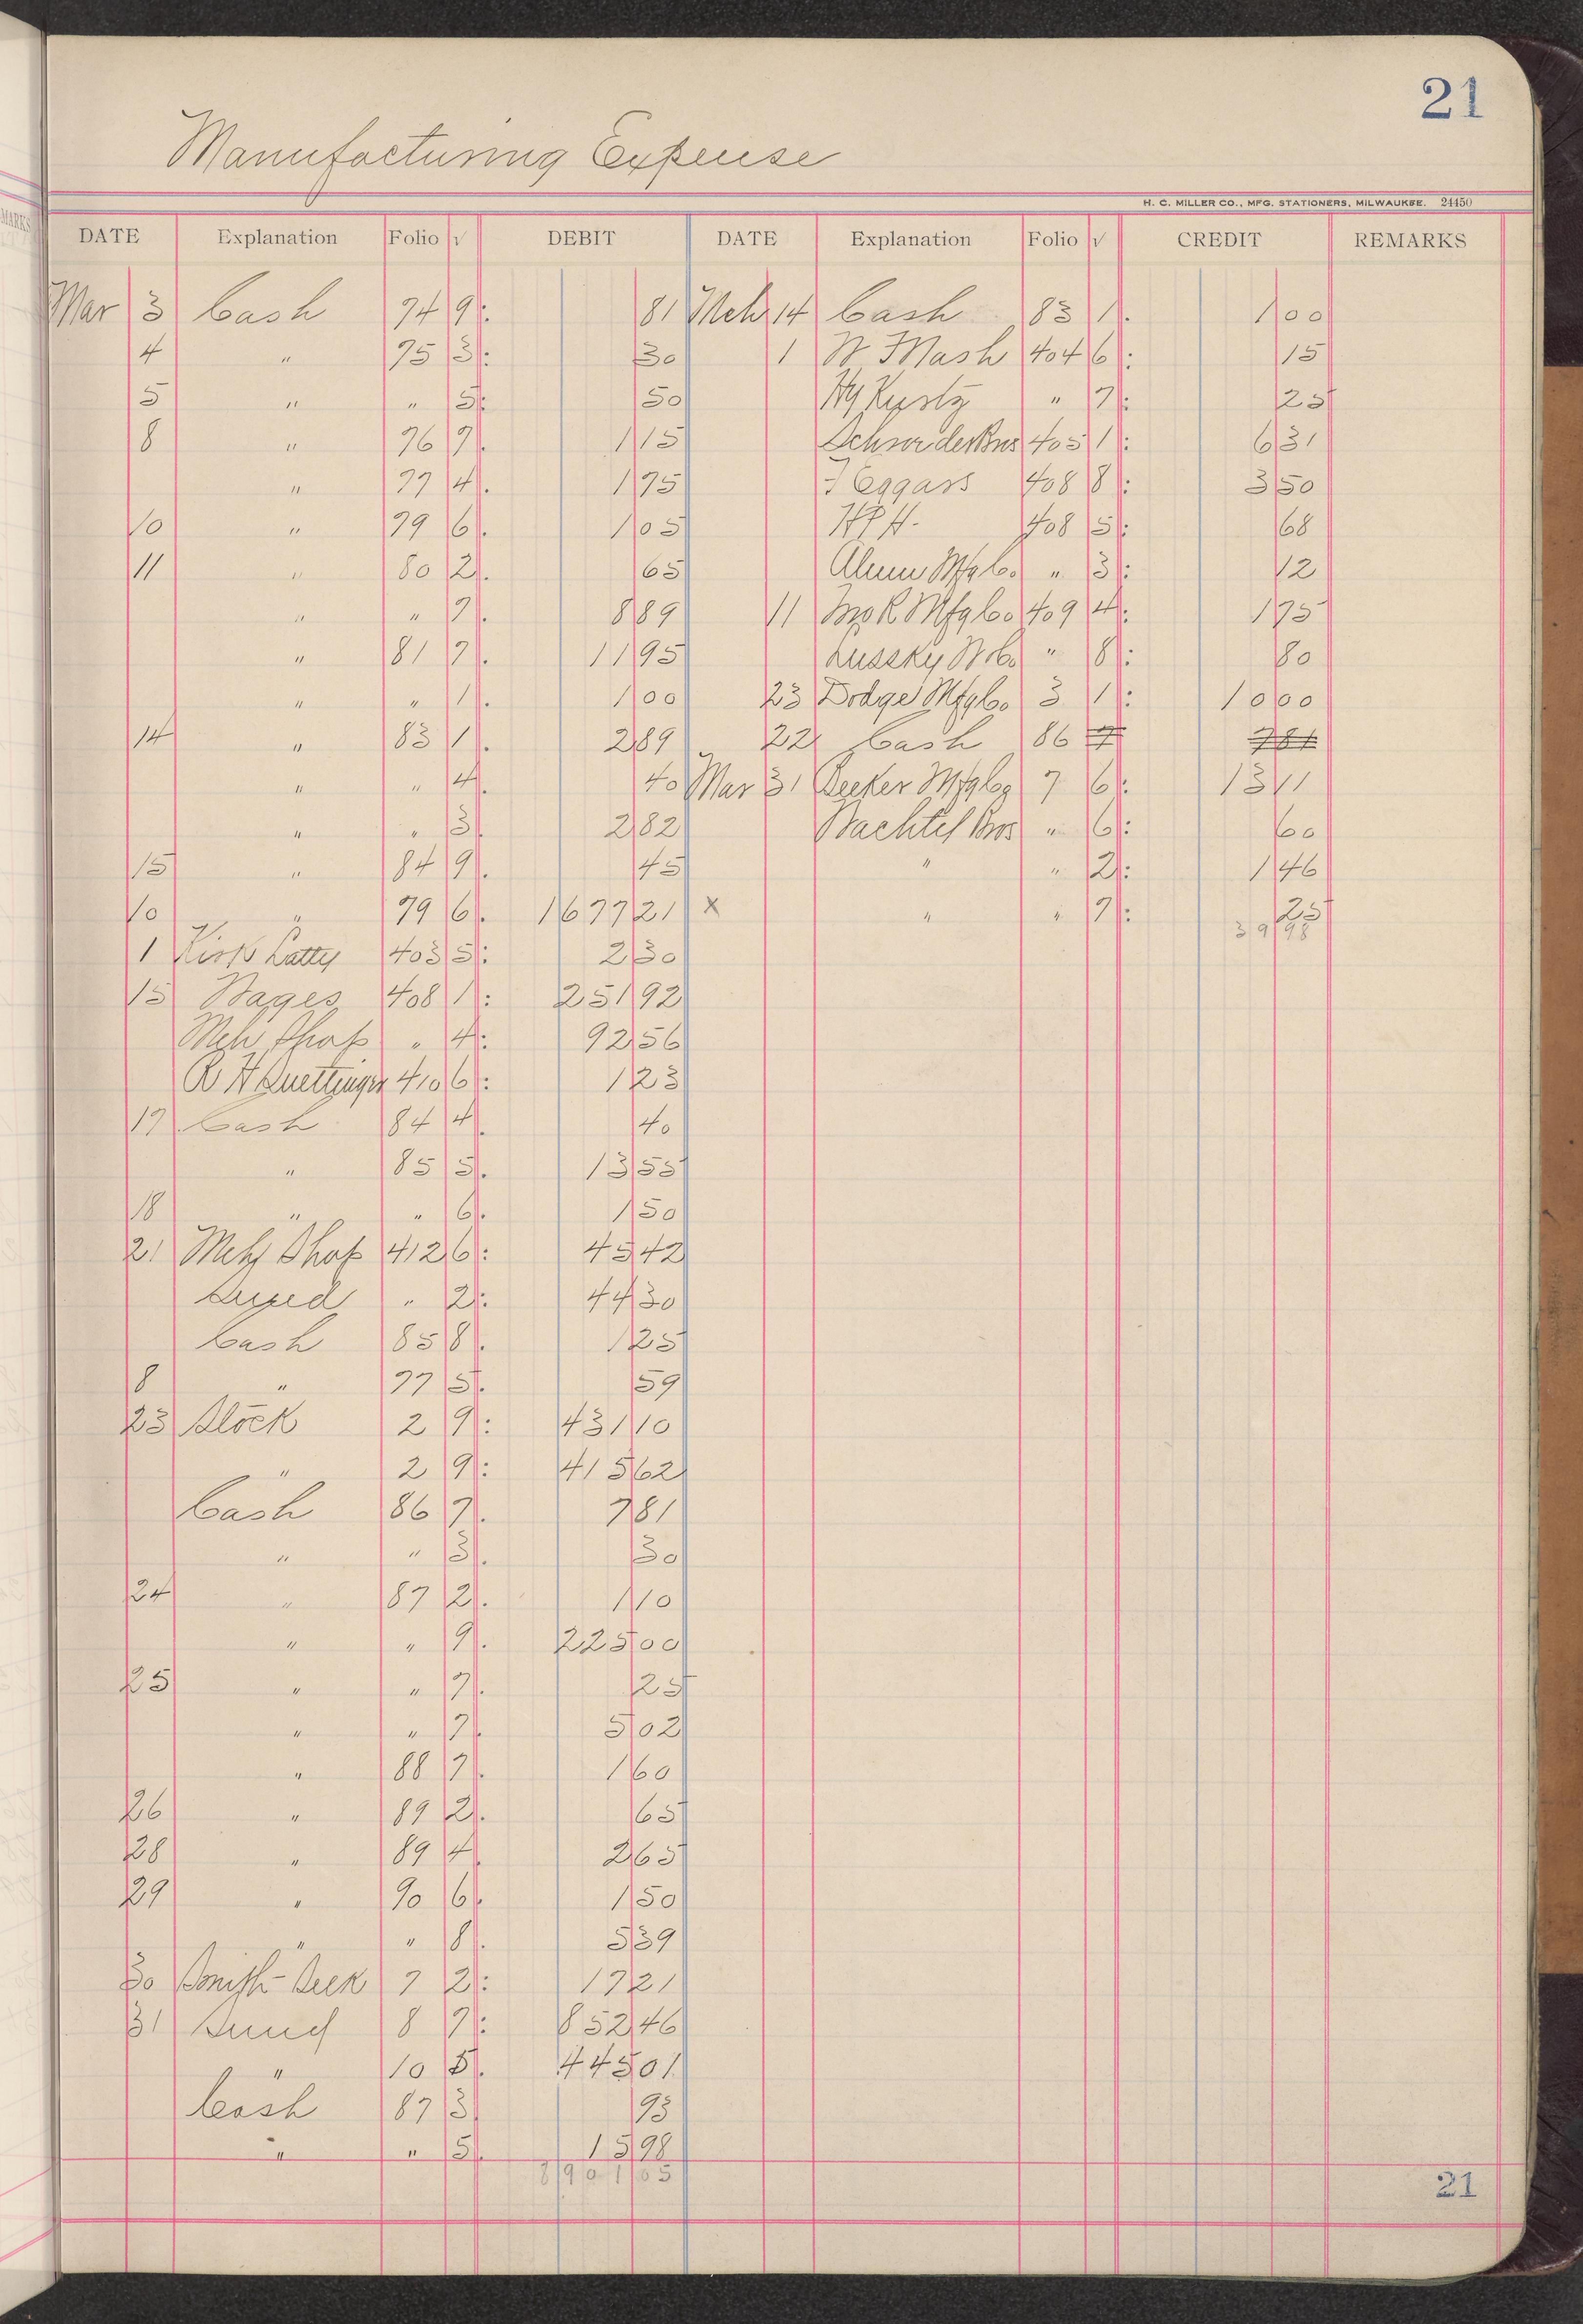 21
Manufacturing Expense
H. C. MILLER CO., MFG. STATIONERS, MILWAUKEE. 24450
DATE Explanation Folio √ DEBIT DATE Explanation Folio √ CREDIT REMARKS
Mar 3 Cash 74 9 81 Mch 14 Cash 83 1 1 00
4 " 75 3 30 1 W Mash 404 6 15
5 " " 5 50 Hy Kurtz " 7 25
8 " 76 7 1 15 Schroeder Bros 405 1 6 31
" 77 4 1 75 F Eggass 408 8 3 50
10 " 79 6 1 05 H P H. 408 5 68
11 " 80 2 65 Alum Mfg Co. " 3 12
" " 7 8 89 11 Mfg Co 409 4 1 75
" 81 7 11 95 Lussky W Co. " 8 80
" " 1 1 00 23 Dodge Mfg Co. 3 1 10 00
14 " 83 1 2 89 22 Cash 86 7 7 81
" " 4 40 Mar 31 Becker Mfg Co 7 6 13 11
" " 3 2 82 Wachtel Bros " 6 60
15 " 84 9 45 " " 2 1 46
10 " 79 6 1677 21 x " " 7 25
39 98
1 Kirk Latty 403 5 2 30
15 Wages 408 1 251 92
Mch Shop " 4 92 56
R H 410 6 1 23
17 Cash 84 4 40
" 85 5 13 55
18 " " 6 1 50
21 Mch Shop 412 6 45 42
Sund " 2 44 30
Cash 85 8 1 25
8 " 77 5 59
23 Stock 2 9 431 10
" 2 9 415 62
Cash 86 7 7 81
" " 3 30
24 " 87 2 1 10
" " 9 225 00
25 " " 7 25
" " 7 5 02
" 88 7 1 60
26 " 89 2 65
28 " 89 4 2 65
29 " 90 6 1 50
" " 8 5 39
30 7 2 17 21
31 Sund 8 7 852 46
" 10 5 445 01
Cash 87 3 93
" " 5 15 98
21